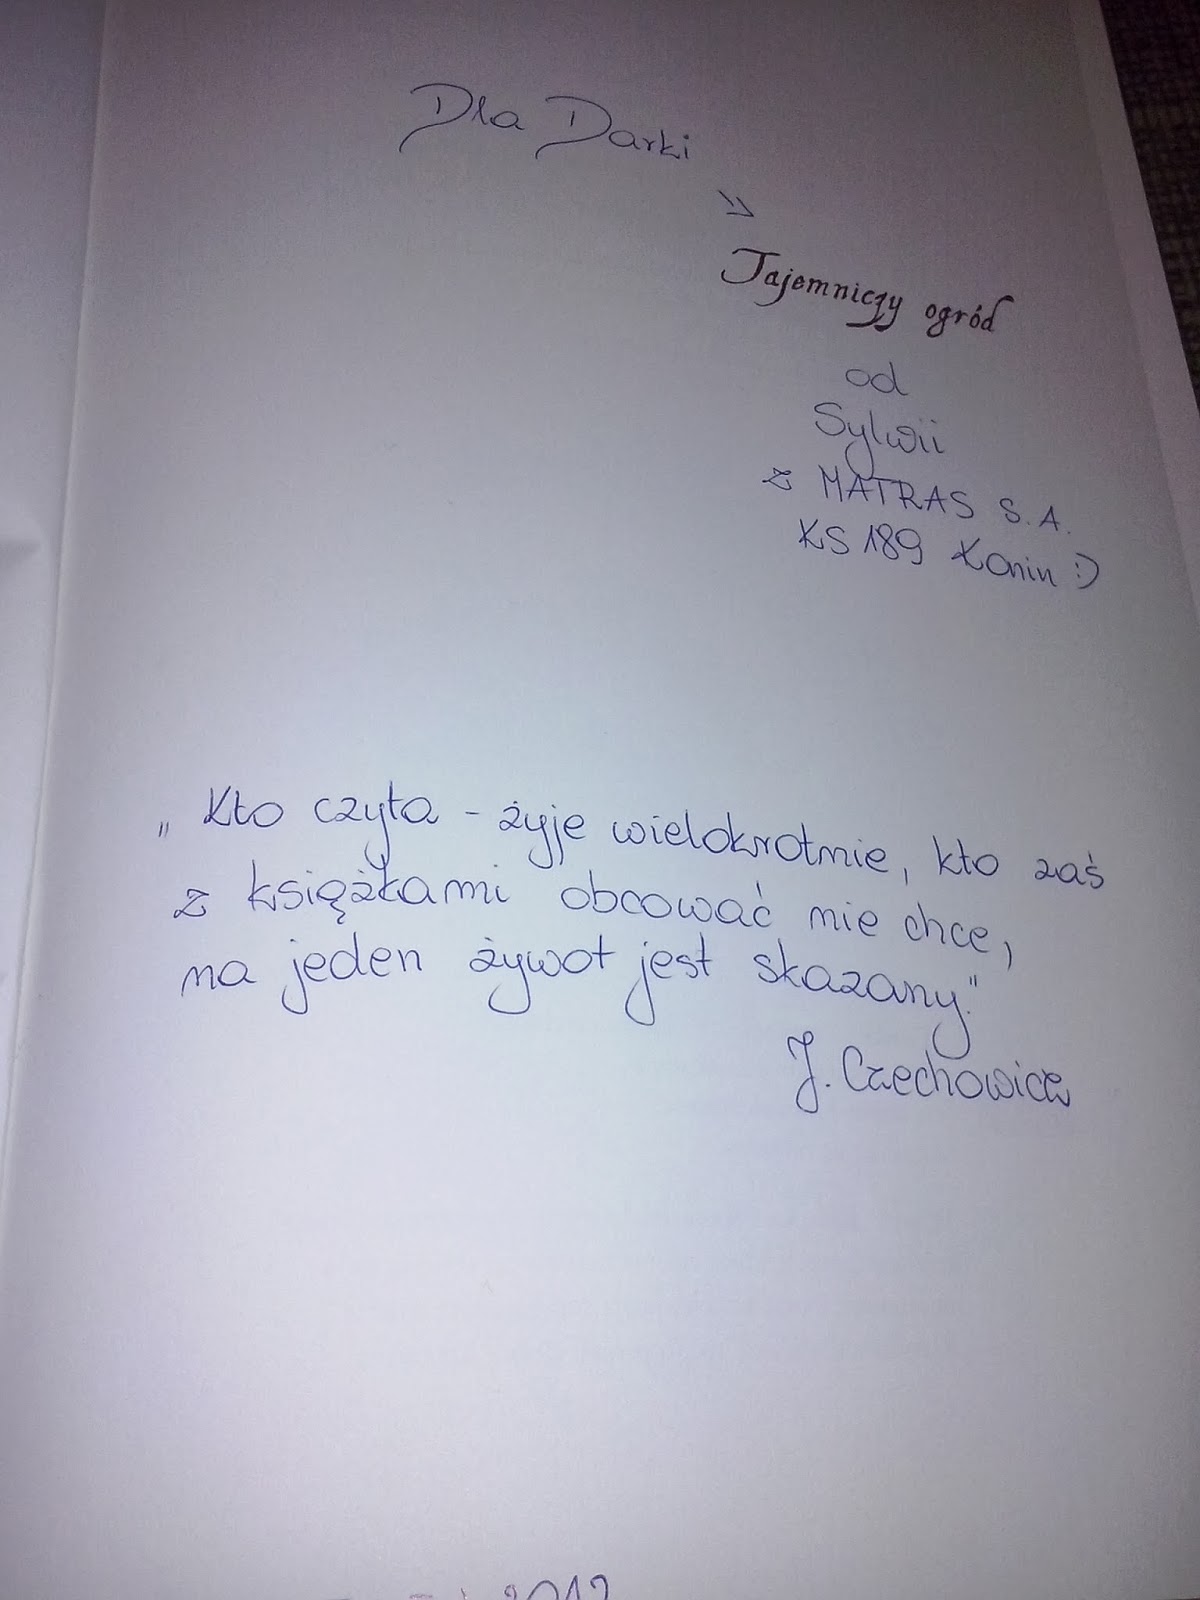 Dla Darki
Tajemniczy ogród
od
Sylwii
z MATRAS S.A.
KS 189 Konin :)
„Kto czyta - żyje wielokrotnie, kto zaś
z książkami obcować nie chce,
na jeden żywot jest skazany."
J. Czechowicz